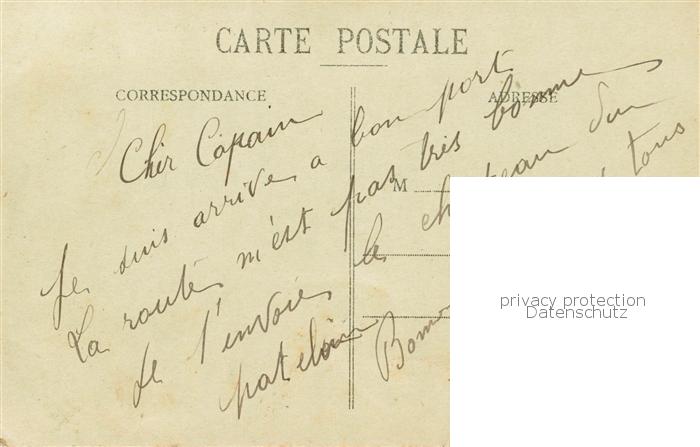 CARTE POSTALE
CORRESPONDANCE
ADRESSE
M
Cher Copain
Je suis arrives a bon port
La routes n'est pas très bonne
Je t'envoies le château du
patelain Bonn tous
privacy protection
Datenschutz